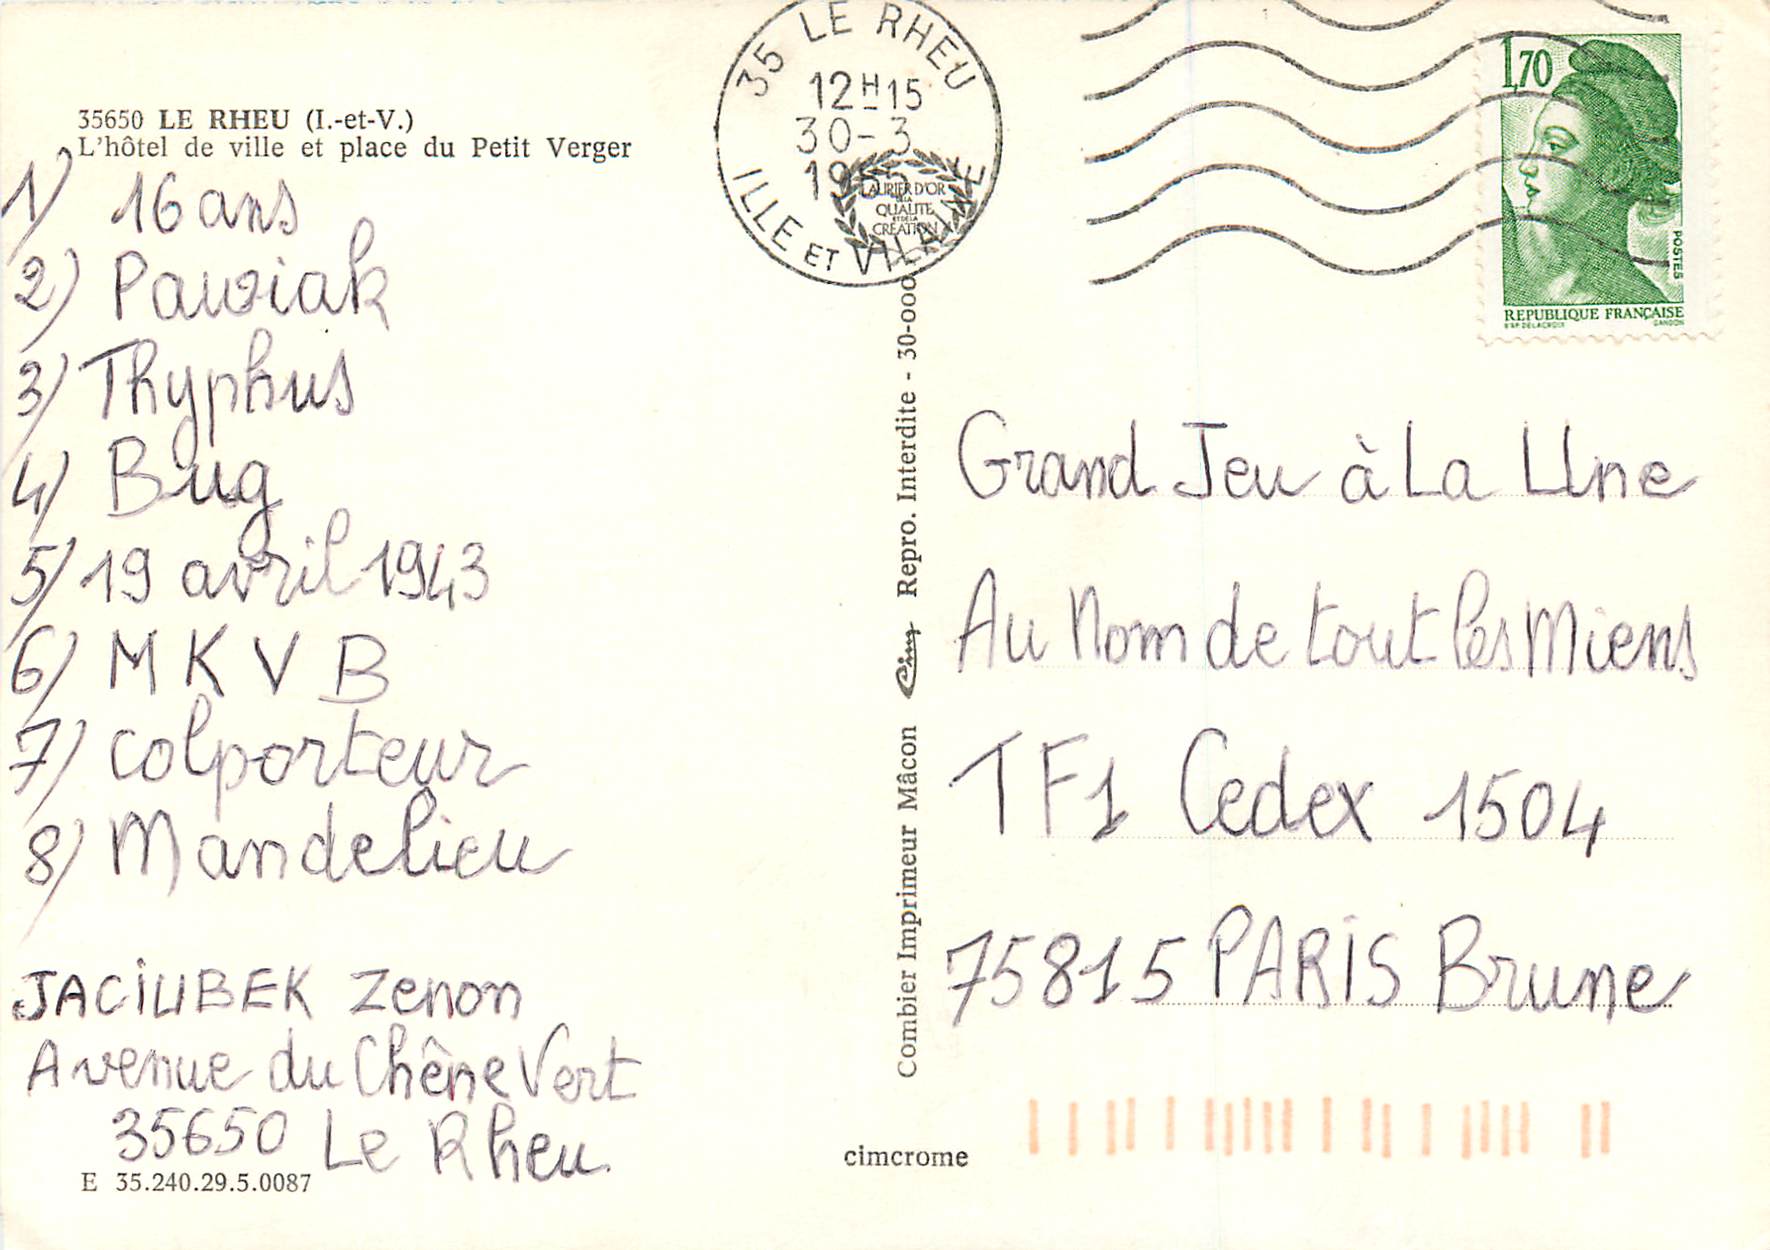 35650 LE RHEU (I.-et-V.)
L'hôtel de ville et place du Petit Verger
1) 16 ans
2) Pawiak
3) Thyphus
4) Bug
5) 19 avril 1943
6) M K V B
7) colporteur
8) Mandelieu
JACIUBEK Zenon
Avenue du Chêne Vert
35650 Le Rheu
E 35.240.29.5.0087
35 LE RHEU
12H15
30-3
ILLE ET VILAINE
LAURIER D'OR
DE LA
QUALITE
ET DE LA
CREATION
Combier Imprimeur Mâcon Cim Repro. Interdite - 30-000
cimcrome
1,70
POSTES
REPUBLIQUE FRANÇAISE
D'AP DELACROIX GANDON
Grand Jeu à La Une
Au Nom de tout les Miens
TF1 Cedex 1504
75815 PARIS Brune